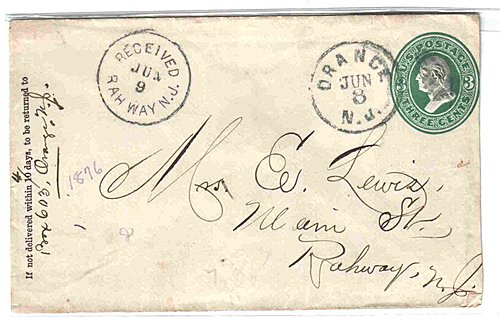 RECEIVED
JUN
9
RAHWAY N.J.
ORANGE
JUN
8
N.J.
U.S. POSTAGE
3 3
THREE CENTS
If not delivered within 10 days, to be returned to
Box 603, Orange, N.J.
1876
Mrs. E. Lewis,
Main St.
Rahway, N.J.